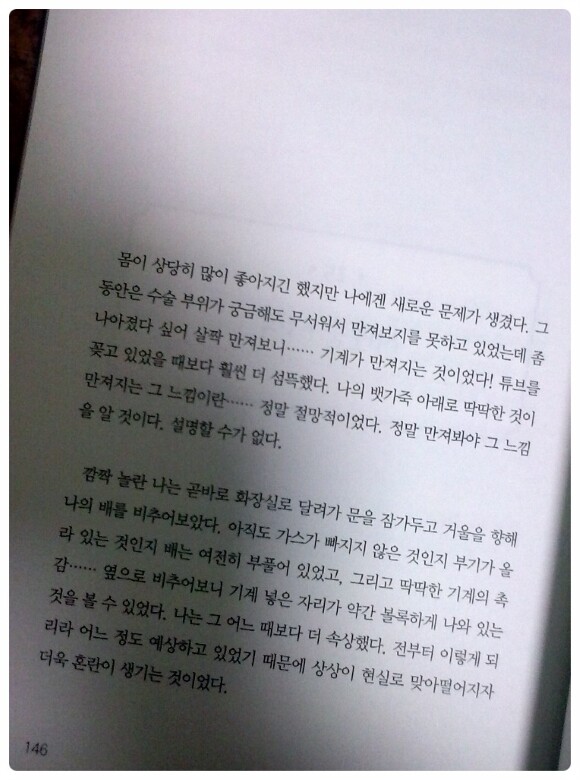 몸이 상당히 많이 좋아지긴 했지만 나에겐 새로운 문제가 생겼다. 그
동안은 수술 부위가 궁금해도 무서워서 만져보지를 못하고 있었는데 좀
나아졌다 싶어 살짝 만져보니…… 기계가 만져지는 것이었다! 튜브를
꽂고 있었을 때보다 훨씬 더 섬뜩했다. 나의 뱃가죽 아래로 딱딱한 것이
만져지는 그 느낌이란…… 정말 절망적이었다. 정말 만져봐야 그 느낌
을 알 것이다. 설명할 수가 없다.
깜짝 놀란 나는 곧바로 화장실로 달려가 문을 잠가두고 거울을 향해
나의 배를 비추어보았다. 아직도 가스가 빠지지 않은 것인지 부기가 올
라 있는 것인지 배는 여전히 부풀어 있었고, 그리고 딱딱한 기계의 촉
감…… 옆으로 비추어보니 기계 넣은 자리가 약간 볼록하게 나와 있는
것을 볼 수 있었다. 나는 그 어느 때보다 더 속상했다. 전부터 이렇게 되
리라 어느 정도 예상하고 있었기 때문에 상상이 현실로 맞아떨어지자
더욱 혼란이 생기는 것이었다.
146